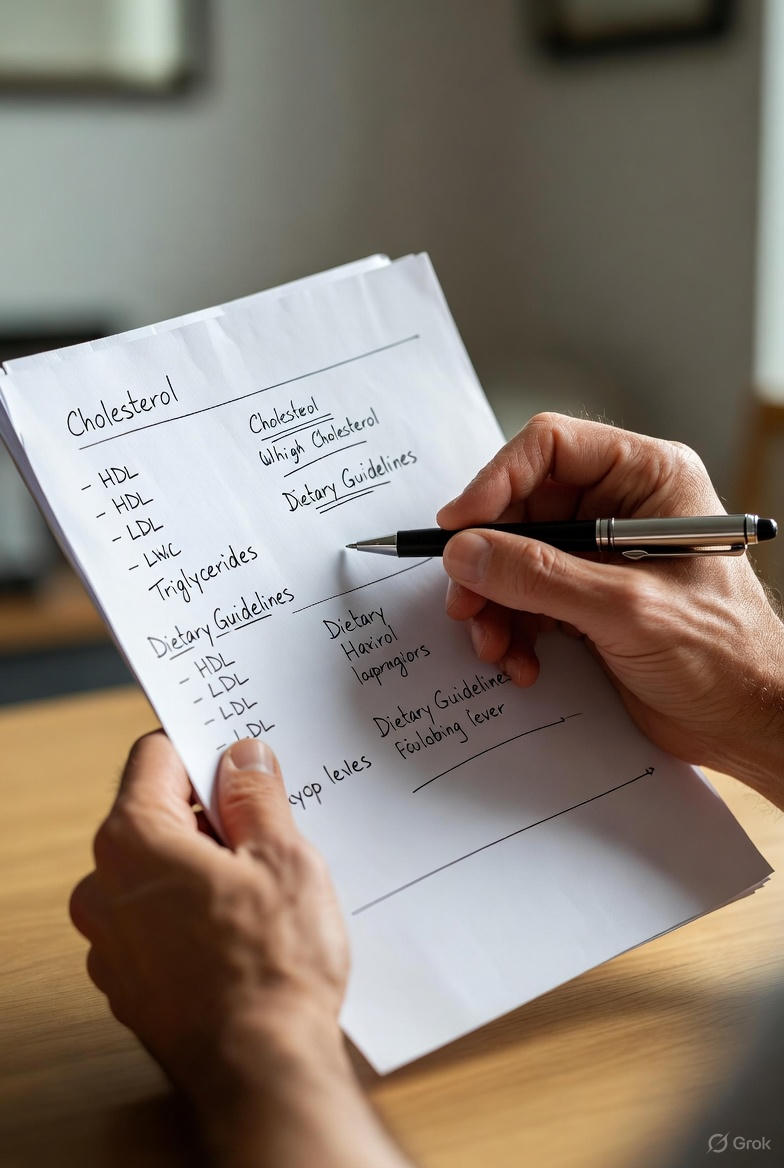 Cholesterol
- HDL
- HDL
- LDL
- LWC
Triglycerides
Dietary Guidelines
- HDL
- LDL
- LDL
- LDL
yop levles
Cholesteol
Whigh Cholesterol
Dietary Guidelines
Dietary
Havirol
Dietary Guidelines
lever
Grok